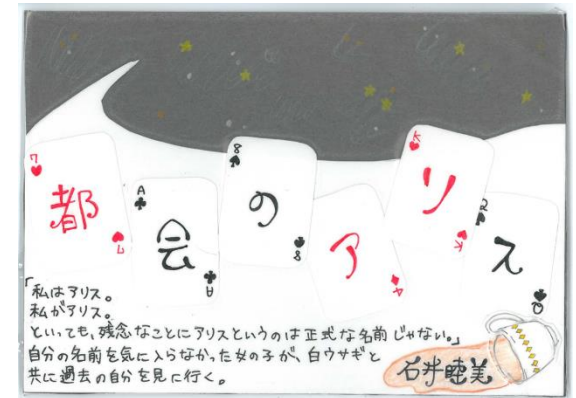 都会のアリス
「私はアリス。
私がアリス。
といっても、残念なことにアリスというのは正式な名前じゃない。」
自分の名前を気に入らなかった女の子が、白ウサギと
共に過去の自分を見に行く。
石井睦美